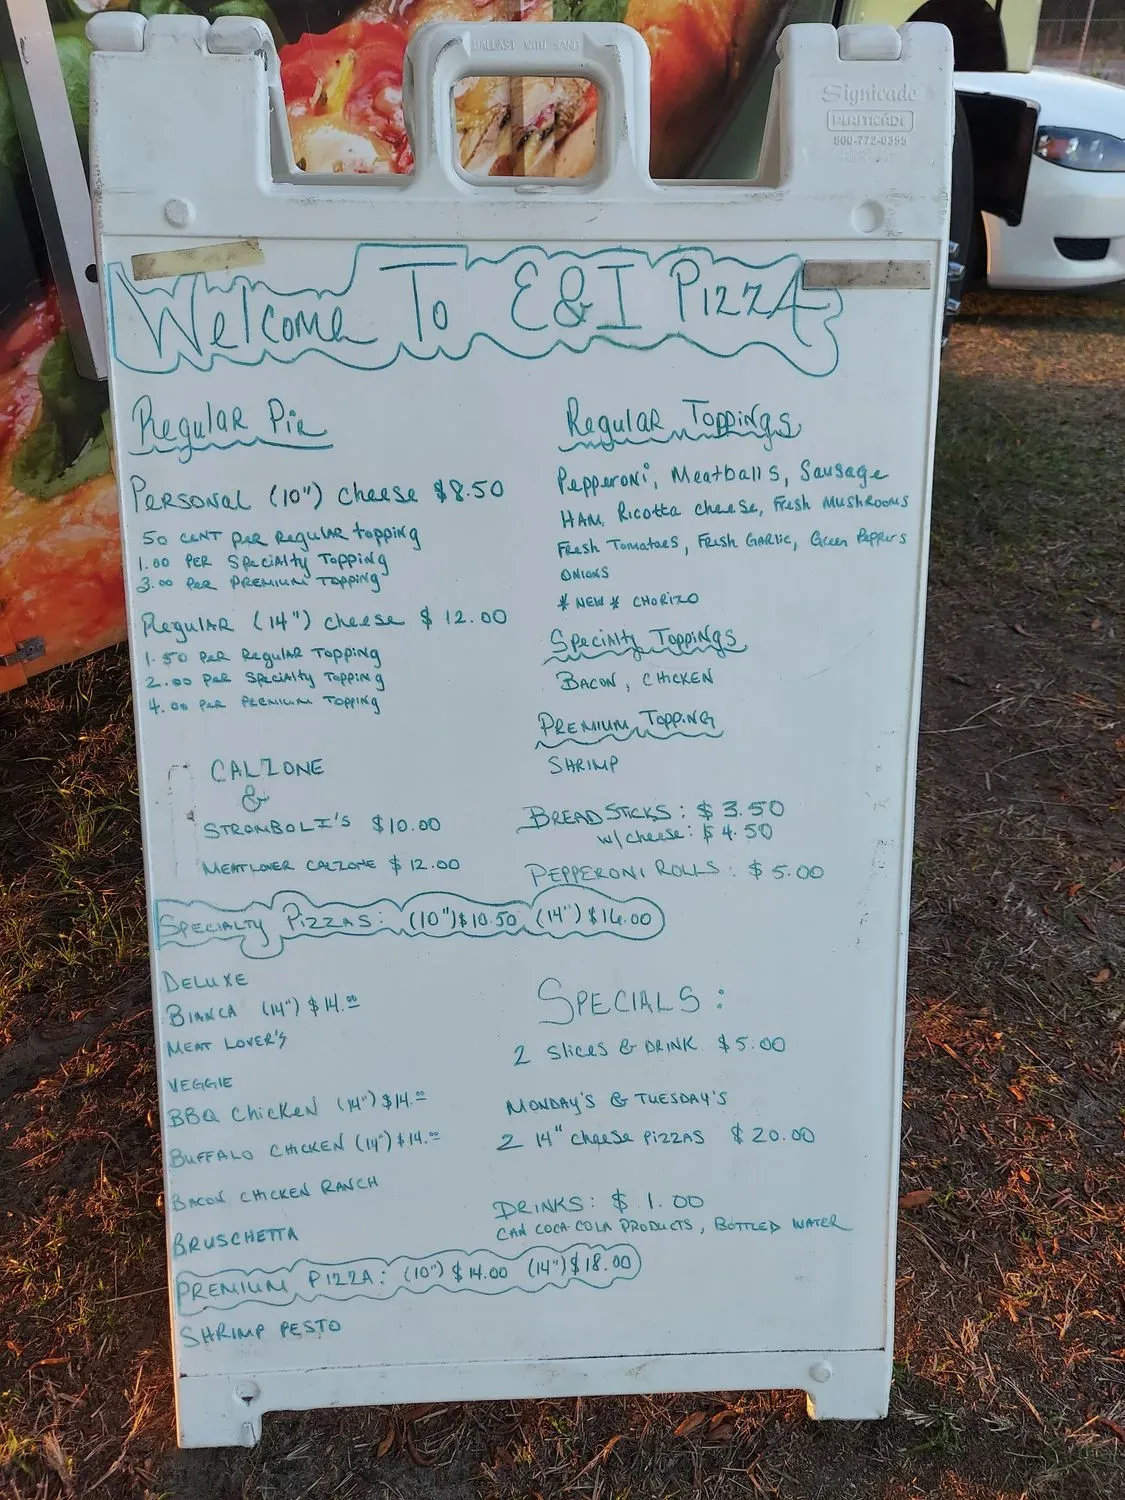 BALLAST WITH SAND
Signicade
PLASTICADE
800-772-0355
Welcome To E&I PIZZA
Regular Pie
PERSONAL (10") cheese $8.50
50 CENT per Regular topping
1.00 PER Specialty Topping
3.00 Per PREMIUM Topping
Regular (14") cheese $12.00
1.50 per Regular Topping
2.00 per Specialty Topping
4.00 per PREMIUM Topping
CALZONE
&
STROMBOLI'S $10.00
MEATLOVER CALZONE $12.00
Regular Toppings
Pepperoni, Meatballs, Sausage
HAM, Ricotta cheese, Fresh MUSHROOMS
Fresh Tomatoes, Fresh Garlic, Green Peppers
ONIONS
*NEW* CHORIZO
Specialty Toppings
BACON, CHICKEN
PREMIUM TOPPING
SHRIMP
BREADSTICKS: $3.50
w/ cheese: $4.50
PEPPERONI ROLLS: $5.00
SPECIALTY PIZZAS: (10") $10.50 (14") $16.00
DELUXE
BIANCA (14") $14.00
MEAT LOVER'S
VEGGIE
BBQ CHICKEN (14") $14.00
BUFFALO CHICKEN (14") $14.00
BACON CHICKEN RANCH
BRUSCHETTA
PREMIUM PIZZA: (10") $14.00 (14") $18.00
SHRIMP PESTO
SPECIALS:
2 Slices & DRINK $5.00
MONDAY'S & TUESDAY'S
2 14" cheese PIZZAS $20.00
DRINKS: $1.00
CAN COCA-COLA PRODUCTS, BOTTLED WATER